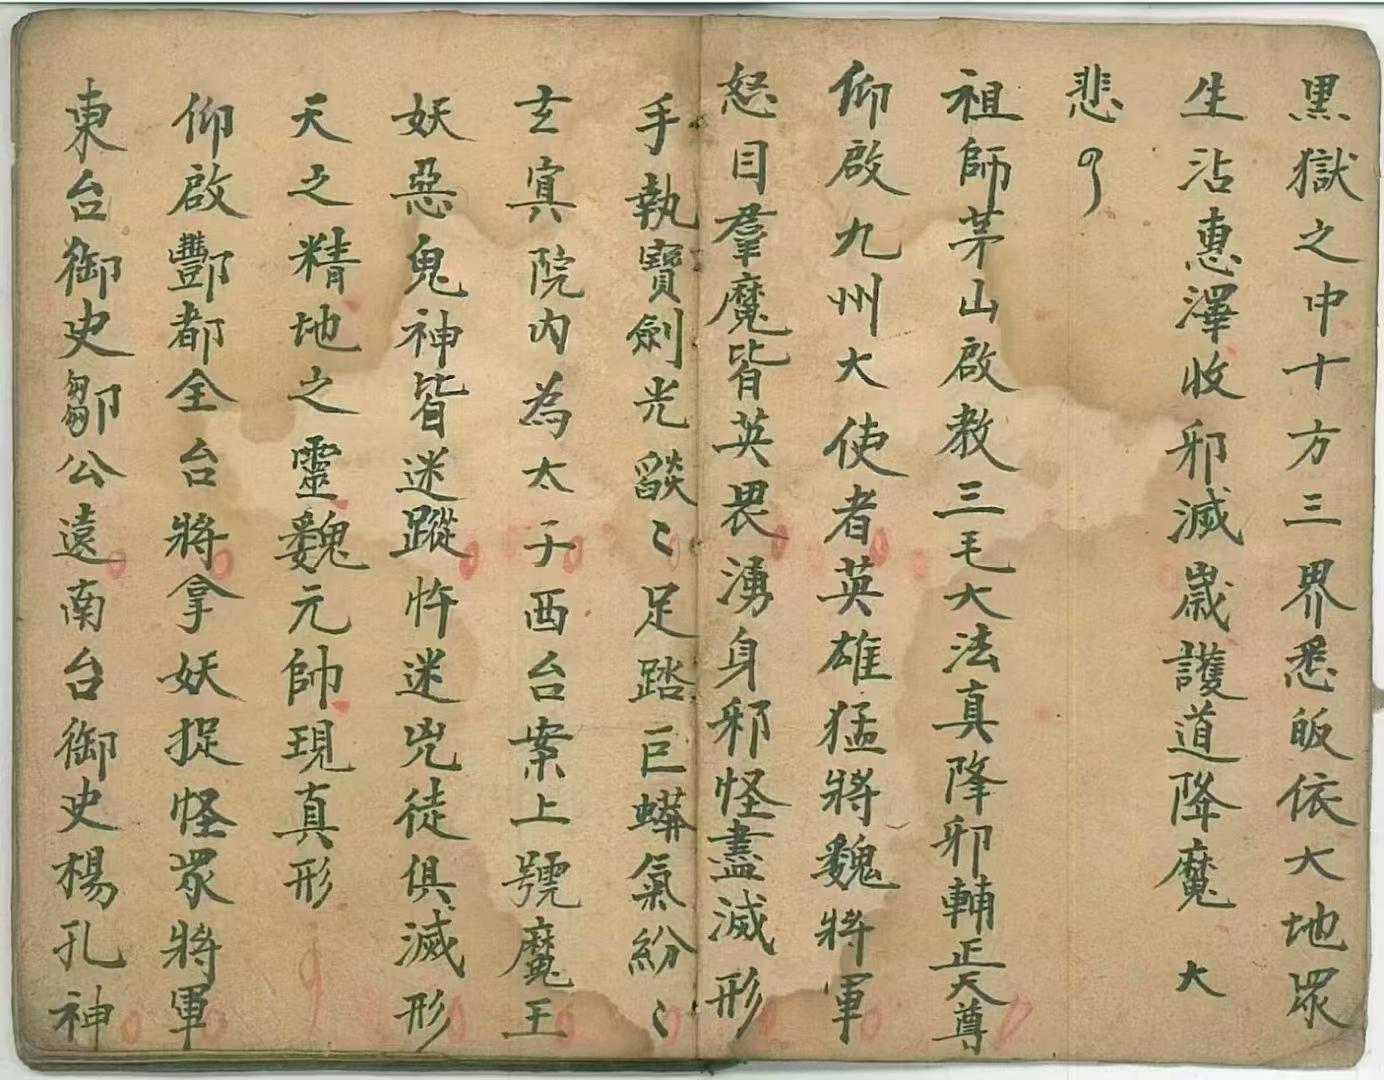 黒獄之中十方三界悉皈依大地眾
生沾惠澤收邪滅嵗護道降魔　大
悲
祖師茅山啟教三毛大法真降邪輔正天尊
仰啟九州大使者英雄猛將魏將軍
怒目羣魔皆英畏湧身邪怪盡滅形
手執寶劍光燄〻足踏巨蟒氣紛〻
玄寘院内為太子西台案上號魔王
妖惡鬼神皆迷蹤忤迷兇徒俱滅形
天之精地之靈魏元帥現真形
仰啟酆都全台將拿妖捉怪眾將軍
東台御史鄒公遠南台御史楊孔神